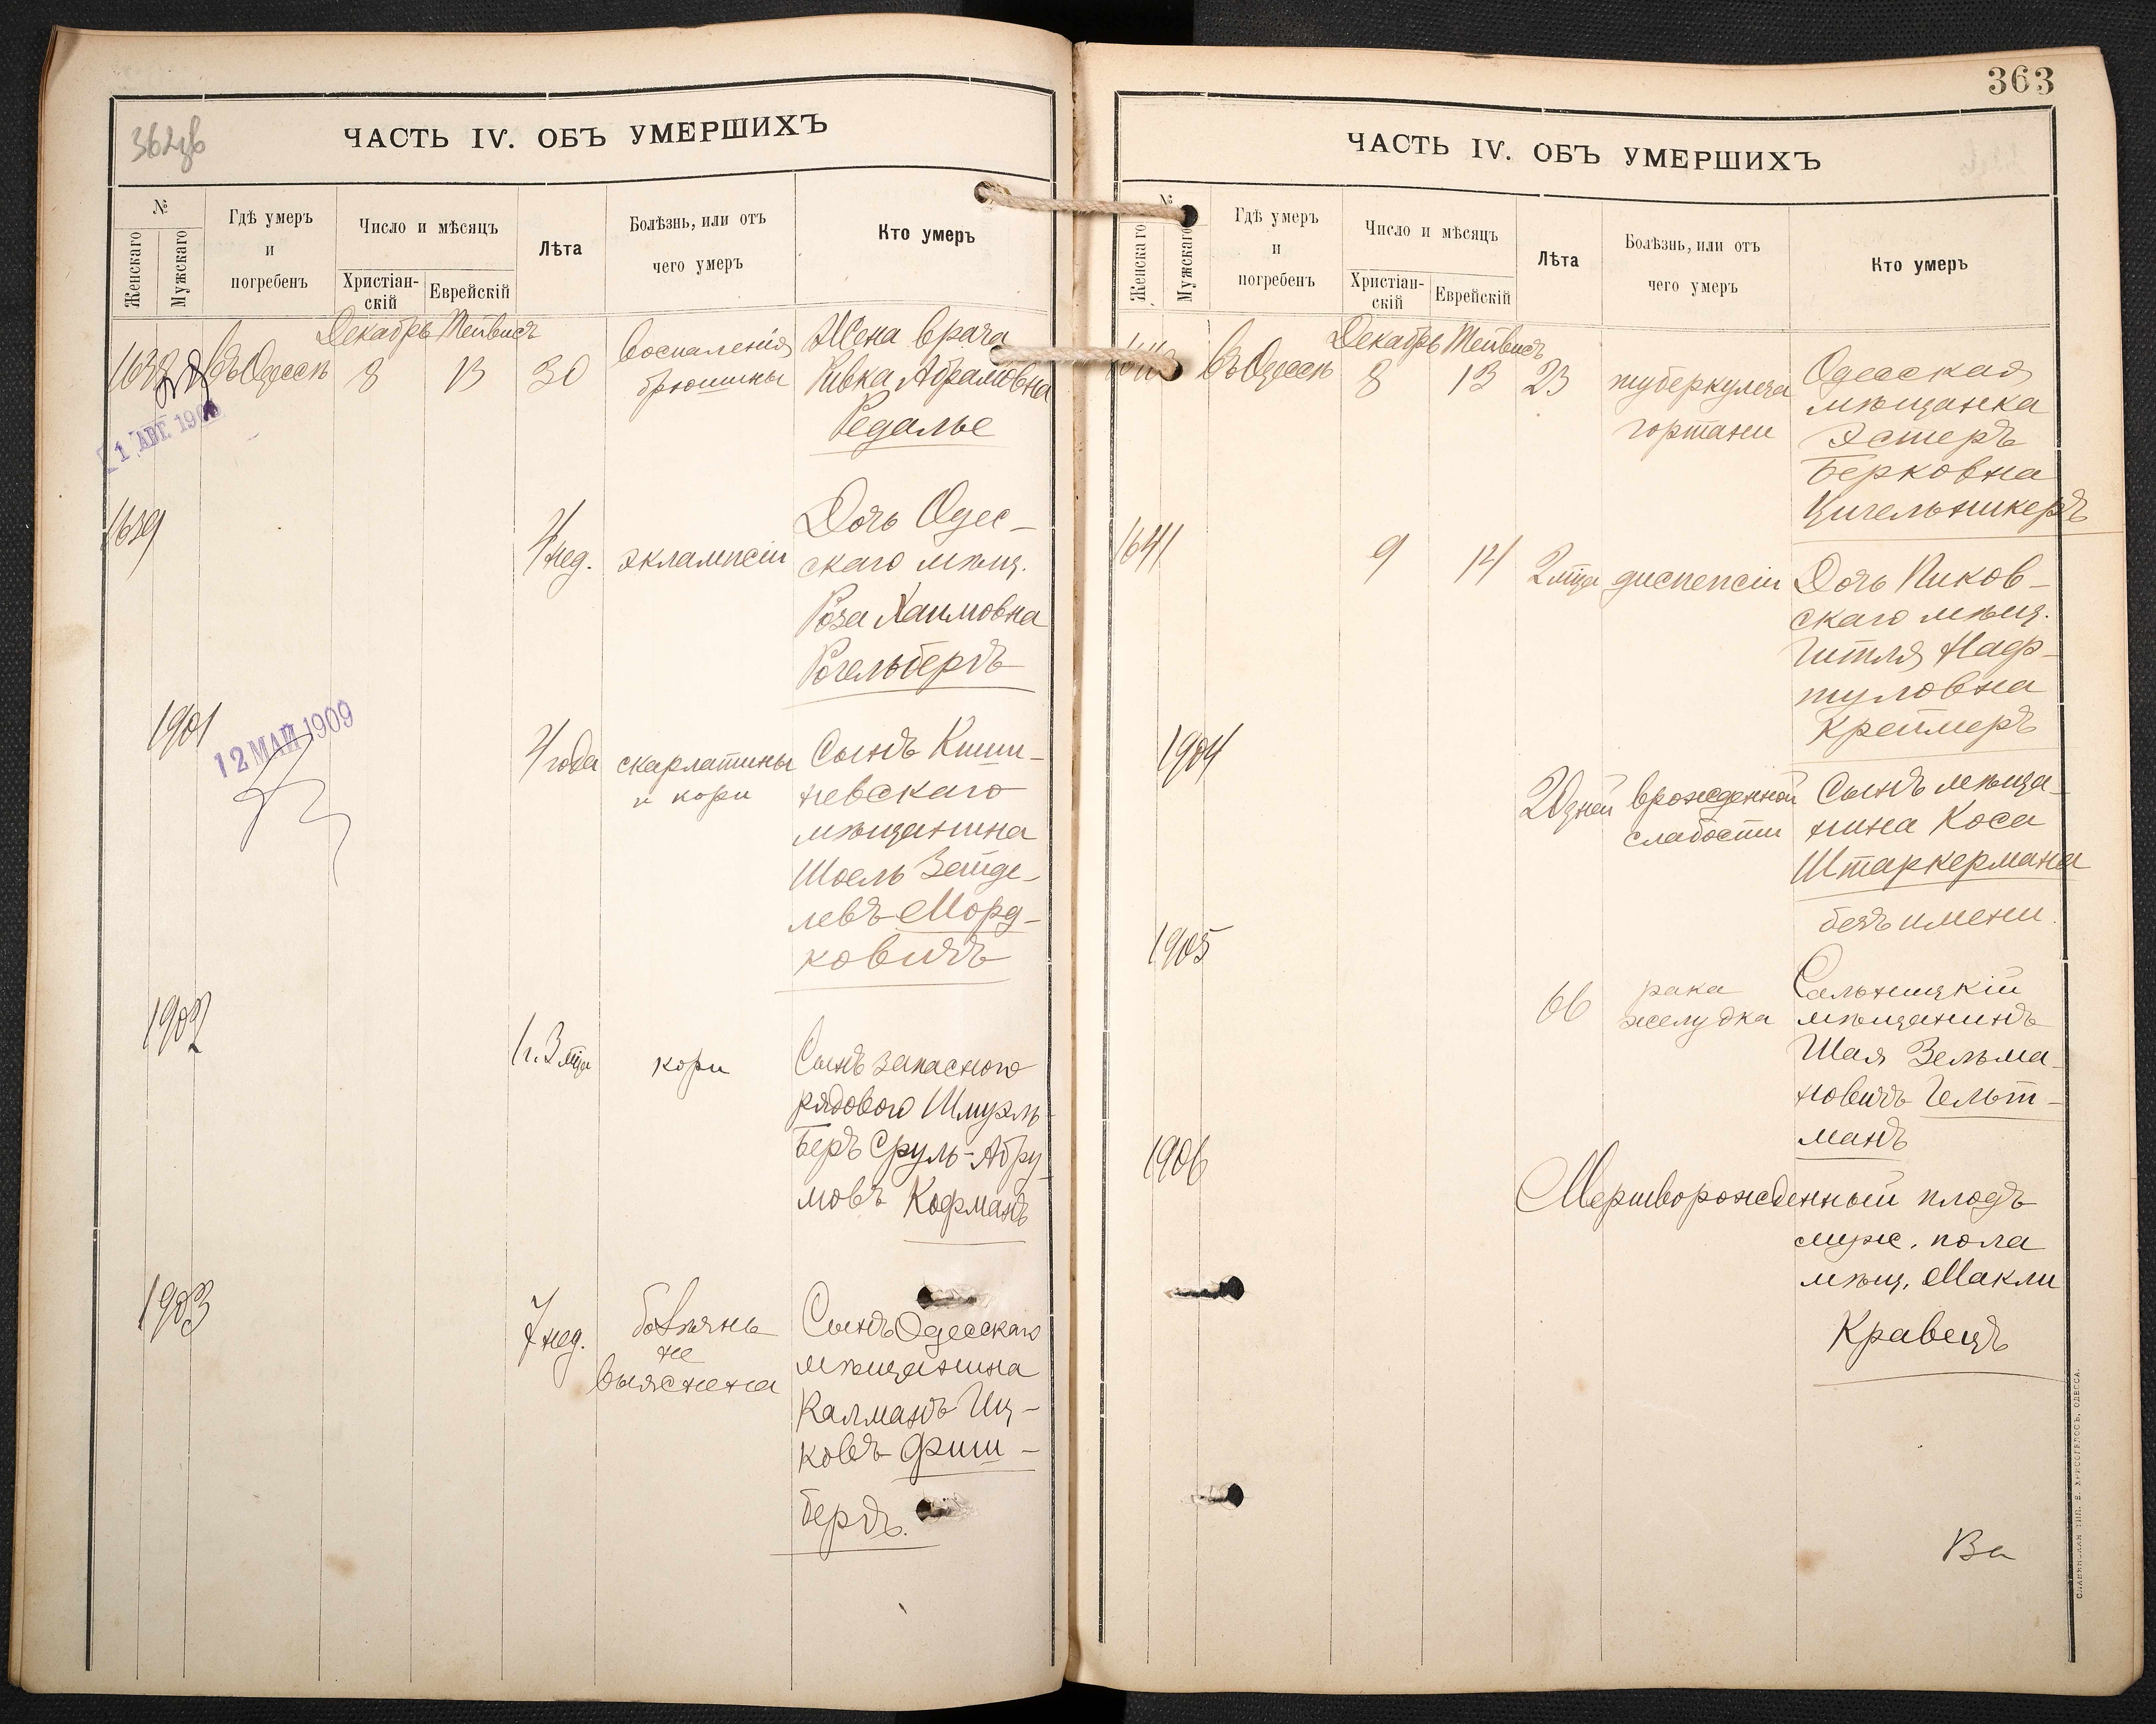 ЧАСТЬ IV. ОБЪ УМЕРШИХЪ
№
Женскаго
Мужскаго
Гдѣ умеръ
и
погребенъ
Число и мѣсяцъ
Христіан-
скій
Еврейскій
Лѣта
Болѣзнь, или отъ
чего умеръ
Кто умеръ
Декабрь Тейвисъ
1638 въ Одессѣ 8 13 30 воспаленія Жена врача
брюшины Ривка Абрамовна
Редалье
1639
4 нед. эклампсіи Дочь Одес-
скаго мѣщ.
Роза Хаимовна
Рогельбергъ
1901
12 МАЙ 1909
4 года скарлатины Сынъ Киши-
и кори невскаго
мѣщанина
Шоель Зейде-
левъ Морд-
ковичъ
1902
1 г. 3 мца кори Сынъ запаснаго
рядового Шмуэль-
Беръ Сруль-Абру-
мовъ Кофманъ
1903
7 нед. болѣзнь Сынъ Одесскаго
не мѣщанина
выяснена Калманъ Иц-
ковъ Фиш-
бергъ.
363
ЧАСТЬ IV. ОБЪ УМЕРШИХЪ
№
Женскаго
Мужскаго
Гдѣ умеръ
и
погребенъ
Число и мѣсяцъ
Христіан-
скій
Еврейскій
Лѣта
Болѣзнь, или отъ
чего умеръ
Кто умеръ
Декабрь Тейвисъ
1640 въ Одессѣ 8 13 23 туберкулеза Одесская
гортани мѣщанка
Эстеръ
Берковна
Цигельникеръ
1641 9 14 2 мца диспепсіи Дочь Пиков-
скаго мѣщ.
Гитля Наф-
туловна
Креймеръ
1904
20 дней врожденной Сынъ мѣща-
слабости нина Коса
Штаркермана
безъ имени.
1905
66 рака Сальницкій
желудка мѣщанинъ
Шая Зельма-
новичъ Гельт-
манъ
1906
Мертворожденный плодъ
муж. пола
мѣщ. Макли
Кравецъ
Ва